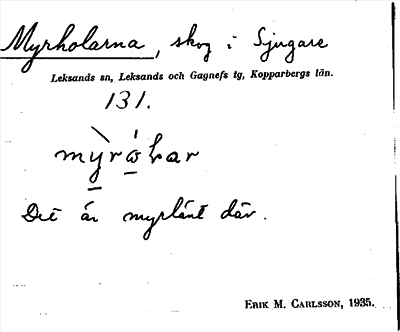 Myrholarna, skog i Sjugare
Leksands sn, Leksands och Gagnefs tg, Kopparbergs län.
131.
Det är myrlänt där.
ERIK M. CARLSSON, 1935.